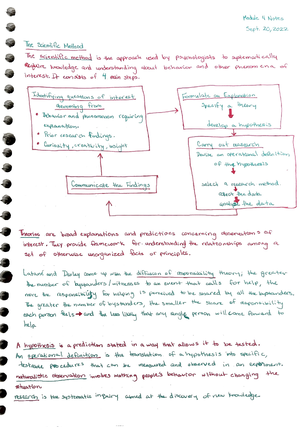 Module 4 Notes
Sept. 20, 2022
The Scientific Method
The scientific method is the approach used by psychologists to systematically
acquire knowledge and understanding about behavior and other phenomena of
interest. It consists of 4 main steps.
Identifying questions of interest
stemming from
• Behavior and phenomenon requiring
explanations
• Prior research findings.
• Curiosity, creativity, insight
Formulate an Explanation
Specify a theory
develop a hypothesis
Carry out research
Devise an operational definition
of the hypothesis
select a research method.
collect the data
analyze the data
Communicate the Findings
Theories are broad explanations and predictions concerning phenomenons of
interest. They provide framework for understanding the relationships among a
set of otherwise unorganized facts or principles.
Latané and Darley came up with the diffusion of responsibility theory, the greater
the number of bystanders/witnesses to an event that calls for help, the
more the responsibility for helping is perceived to be shared by all the bystanders.
The greater the number of bystanders, the smaller the share of responsibility
each person feels → and the less likely that any single person will come forward to
help.
A hypothesis is a prediction stated in a way that allows it to be tested.
An operational definition is the translation of a hypothesis into specific,
testable procedures that can be measured and observed in an experiment.
naturalistic observation involves watching people's behaviour without changing the
situation
research is the systematic inquiry aimed at the discovery of new knowledge.